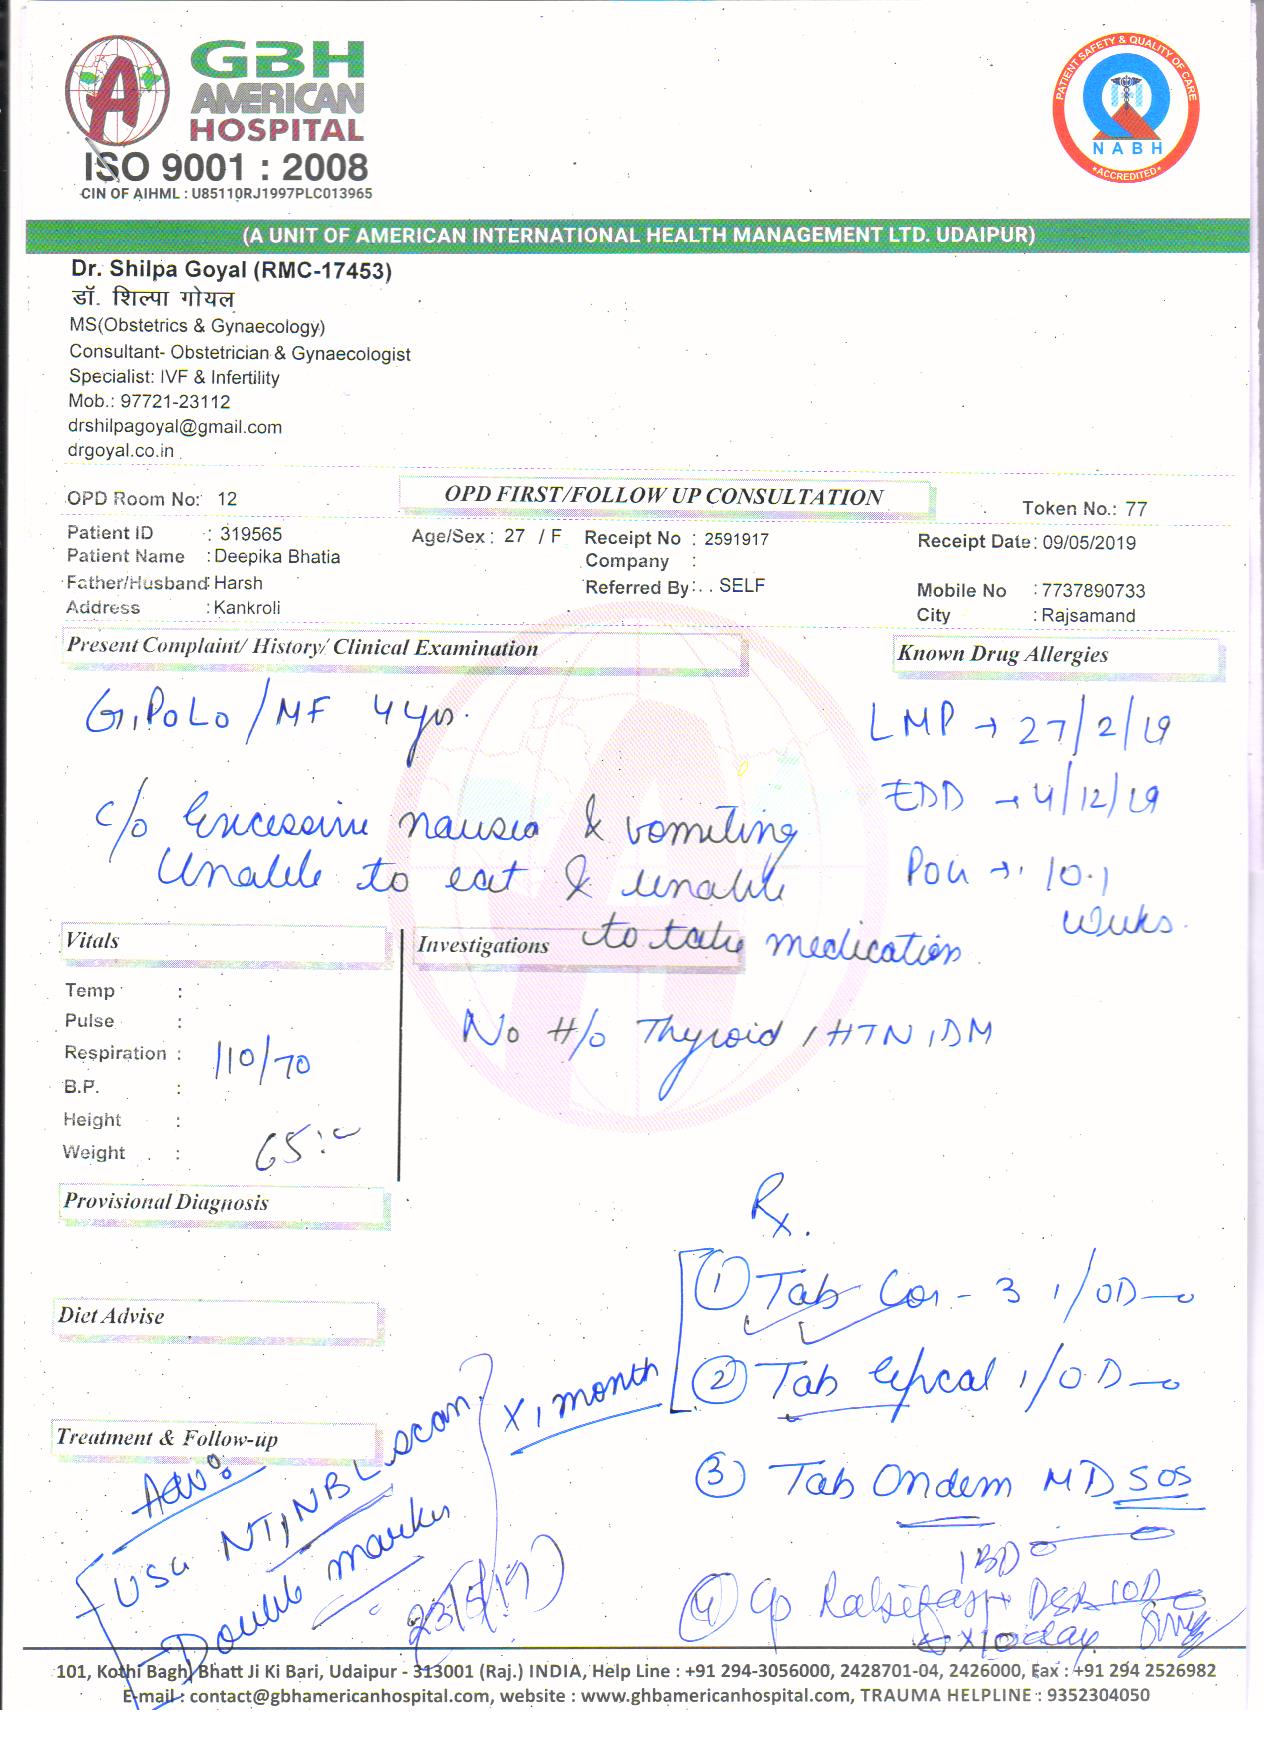 GBH
AMERICAN
HOSPITAL
ISO 9001 : 2008
CIN OF AIHML : U85110RJ1997PLC013965
PATIENT SAFETY & QUALITY OF CARE
NABH
ACCREDITED
(A UNIT OF AMERICAN INTERNATIONAL HEALTH MANAGEMENT LTD. UDAIPUR)
Dr. Shilpa Goyal (RMC-17453)
डॉ. शिल्पा गोयल
MS(Obstetrics & Gynaecology)
Consultant- Obstetrician & Gynaecologist
Specialist: IVF & Infertility
Mob.: 97721-23112
drshilpagoyal@gmail.com
drgoyal.co.in
OPD Room No: 12 OPD FIRST/FOLLOW UP CONSULTATION Token No.: 77
Patient ID : 319565 Age/Sex : 27 / F Receipt No : 2591917 Receipt Date: 09/05/2019
Patient Name : Deepika Bhatia Company :
Father/Husband: Harsh Referred By: . . SELF Mobile No : 7737890733
Address : Kankroli City : Rajsamand
Present Complaint/ History/ Clinical Examination Known Drug Allergies
G1P0L0 / MF 4 yrs. LMP → 27/2/19
EDD → 4/12/19
c/o Excessive nausea & vomiting
Unable to eat & unable POG → 10.1
to take medication weeks.
Vitals Investigations
Temp :
Pulse :
Respiration : 110/70
B.P. :
Height :
Weight : 65
No H/o Thyroid / HTN / DM
Provisional Diagnosis
Rx.
① Tab Cor-3 1/OD
Diet Advise
② Tab 1/OD
x 1 month
Treatment & Follow-up
③ Tab Ondem MD SOS
Adv:
USG NT/NB scan
Double marker
23/5/19
1BD
④ Cp DSR 1OD
x 10 day
101, Kothi Bagh, Bhatt Ji Ki Bari, Udaipur - 313001 (Raj.) INDIA, Help Line : +91 294-3056000, 2428701-04, 2426000, Fax : +91 294 2526982
E-mail : contact@gbhamericanhospital.com, website : www.ghbamericanhospital.com, TRAUMA HELPLINE : 9352304050